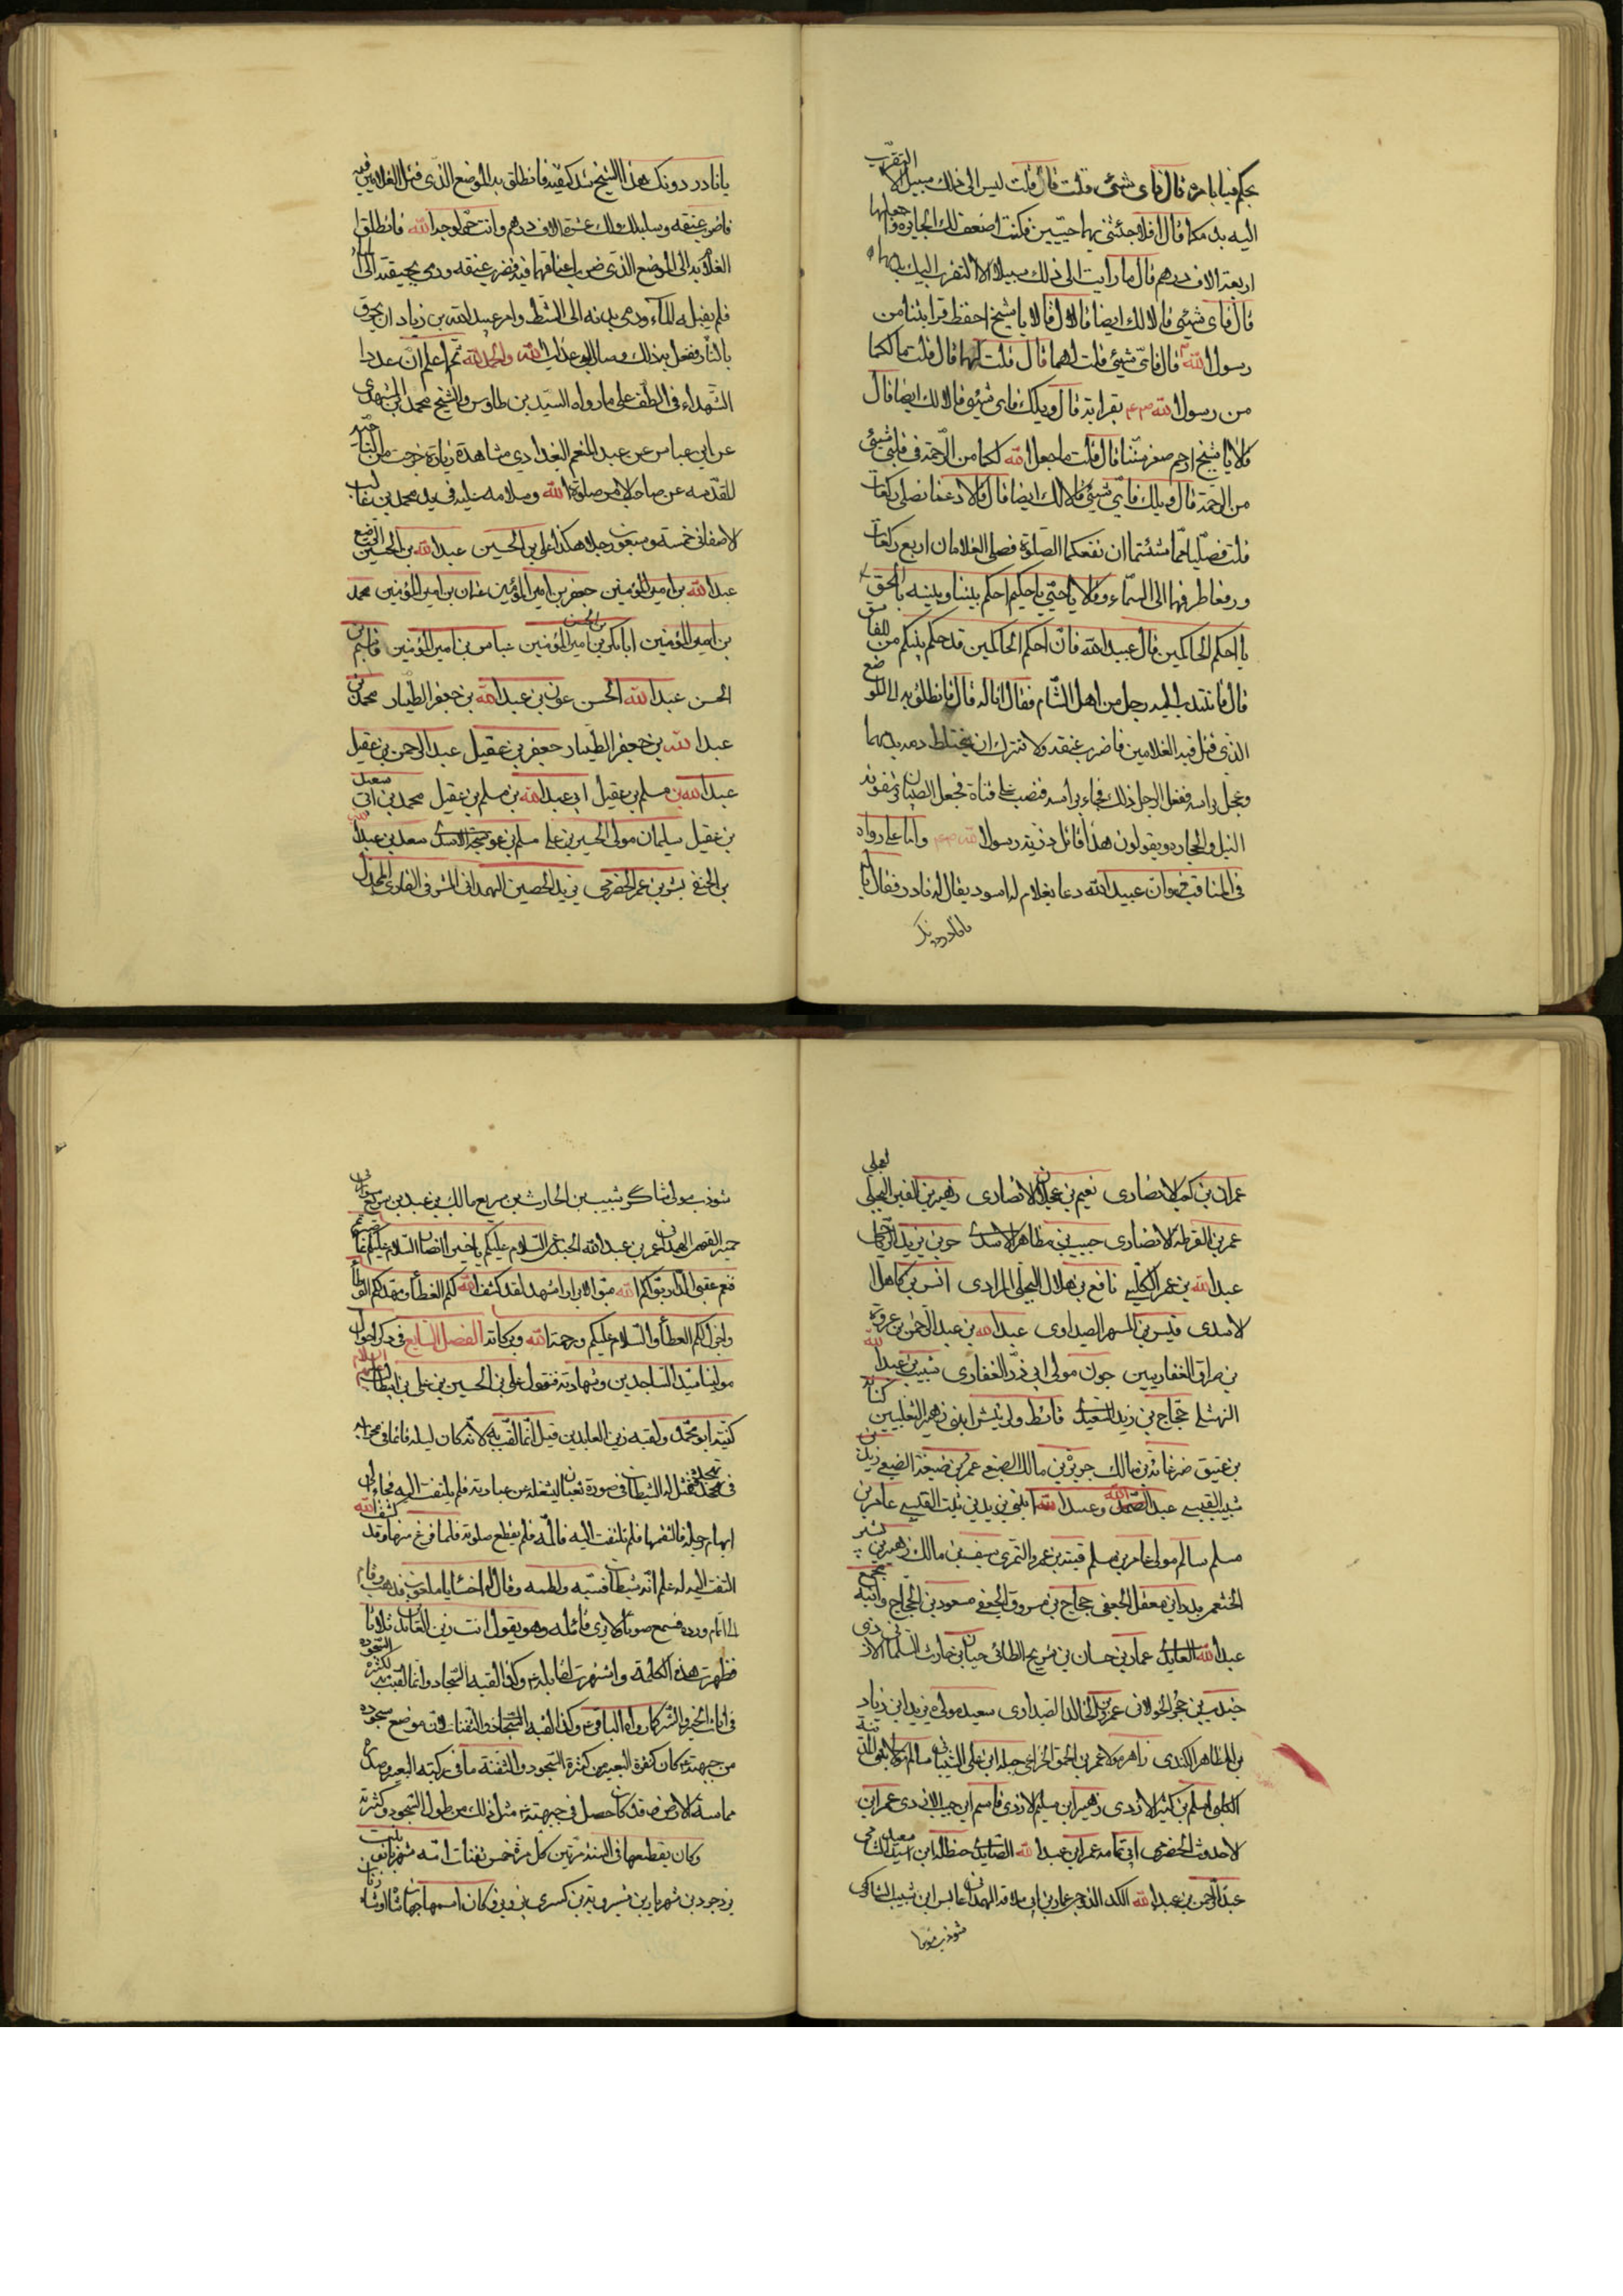 يحكم فينا بامره قال فاى شيئ قلت قال قلت ليس الى ذلك سبيل الا التقرّب
اليه بدمكما قال افلا جئتنى بهما حيّين فكنت اضعف لك الجايزه واجعلها
اربعة الاف درهم قال ما رايت الى ذلك سبيلا الا التقرب اليك بدمهما
قال فاى شيئ قالا لك ايضا قال قالا يا شيخ احفظ قرابتنا من
رسول الله قال فاىّ شيئ قلت لهما قال قلت لهما قال قلت ما لكما
من رسول الله بقرابة قال ويلك فاى شيئ قالا لك ايضا قال
قالا يا شيخ ارحم صغر سنّنا قال قلت ما جعل الله لكما من الرّحمة فى قلبى شيئ
من الرحمة قال ويلك فاىّ شيئ قالا لك ايضا قال قالا دعنا نصلى ركعات
قلت فصلّيا ما شئتما ان نفعكما الصلوة فصلى الغلامان اربع ركعات
ورفعا طرفهما الى السماء وقالا يا حىّ يا حكيم احكم بيننا وبينه بالحق
يا احكم الحاكمين قال عبيد الله فانّ احكم الحاكمين قد حكم بينكم من للفاسق
قال فانتدب اليه رجل من اهل الشّام فقال انا له قال فانطلق به الى الموضع
الذى قتل فيه الغلامين فاضرب عنقه ولا تترك ان يختلط دمه بدمهما
وعجل براسه ففعل الرجل ذلك فجاء براسه فنصب على قناة فجعل الصبيان يرمونه
النبل والحجاره ويقولون هذا قاتل ذرية رسول الله واما على رواه
فى المناقب فهو ان عبيد الله دعا بغلام له اسود يقال له نادر فقال له يا
يا نادر دونك
يا نادر دونك هذا الشيخ شد كتفيه فانطلق به الموضع الذّى قتل الغلامين فيه
فاضرب عنقه وسلبه لك ولك عشرة الاف درهم وانت حر لوجه الله فانطلق
الغلام به الى الموضع الذى ضرب اعناقهما فيه فضرب عنقه ورمى بجيفته الى الماء
فلم يقبله الماء ورمى به الى الشّط وامر عبيد الله بن زياد ان يحرق
بالنّار ففعل به ذلك وصار الى عذاب الله والحمد لله ثم اعلم انّ عدد
الشّهداء فى الطّف على ما رواه السيّد بن طاوس والشيخ محمد بن المشهدى
عن ابى عباس عن عبد المنعم البغدادى مشاهدة زيارة خرجت من الناحية
المقدّسه عن صاحب الامر صلوة الله وسلامه عليه فى يد محمد بن غالب
الاصفانى خمسة وسبعون رجلا هكذا على بن الحسين عبد الله بن الحسين الرضيع
عبد الله بن امير المؤمنين جعفر بن امير المؤمنين عثمان بن امير المؤمنين محمد
بن امير المؤمنين ابابكر بن امير المؤمنين عباس بن امير المؤمنين قاسم بن
الحسن عبد الله الحسن عون بن عبد الله بن جعفر الطّيار محمد بن
عبد الله بن جعفر الطيار جعفر بن عقيل عبد الرحمن بن عقيل
عبد الله بن مسلم بن عقيل ابى عبد الله بن مسلم بن عقيل محمد بن ابى سعيد
بن عقيل سليمان مولى الحسين بن على مسلم بن عوسجة الاسدى سعد بن عبد الله
بن الحنفى بشر بن عمر الخضرمى يزيد الحصين الهمدانى المشرفى القارى المجدل
عمران بن كعب الانصارى نعيم بن عجلان الانصارى زهير بن القين البجلى
عمر بن القرطه الانصارى حبيب بن مظاهر الاسدى حر بن يزيد الرّياحى
عبد الله بن عمر الكلبى نافع بن هلال البجلى المرادى انس بن كاهل
الاسدى قيس بن المسهر الصيداوى عبد الله بن عبد الرّحمن بن عروة
بن حراق الغفاريين جون مولى ابى ذرّ الغفارى شبيب بن عبد الله
النهشلى حجّاج بن زيد السعدى قاسط وكرش ابنى زهير الثعلبيين كنانة
بن عتيق ضرغامة بن مالك جوين بن مالك الضبعى عمر بن ضبيعة الضبعى زيد بن
شبيب القيسى عبد الله وعبيد الله ابنى يزيد بن ثبت القيسى عامر بن
مسلم سالم مولى عامر بن مسلم قعنب بن عمرو التمرى سيف بن مالك زهير بن بشر
الخثعمى بدر ابن معقل الجعفى حجاج بن مسروق الجعفى مسعود بن الحجاج وابنه مجمع
عبد الله العايدى عمار بن حسان بن شريح الطائى حيان بن حارث السلمانى الازدى
جندب بن حجر الخولانى عمر بن خالد الصيداوى سعيد مولاه يزيد ابن زياد
بن المظاهر الكندى زاهر مولا عمر بن الحمق الخزاعى جبله ابن على الشيبانى سالم مولا بنى المدينة
الكلبى اسلم بن كثير الازدى زهير ابن سليم الازدى قاسم ابن حبيب الازدى عمر ابن
الاحدوث الحضرمى ابى ثمامه عمر ابن عبد الله الصايدى حنظله ابن اسعد الشامى
عبد الرّحمن بن عبد الله الكدر عمار بن ابى سلامة الهمدانى عابس ابن شبيب الشاكرى
شوذب مولى
شوذب مولى شاكر شبيب بن الحارث بن سريع مالك بن عبد بن سريع سوار بن
حمير الفهمى الهمدانى عمر بن عبد الله الجندعى السّلام عليكم يا خير انصار السّلام عليكم بما صبرتم
فنعم عقبى الدّار بوّاكم الله مبوّا الابرار اشهد لقد كشف الله لكم الغطاء ومهد لكم الوطاء
واجزل لكم العطاء والسّلام عليكم ورحمة الله وبركاته الفصل السّابع فى ذكر احوال
مولينا سيّد السّاجدين وشهادته فنقول على بن الحسين بن على بن ابيطالب عليهم السلام
كنيته ابو محمّد ولقبه زين العابدين قيل انّما لقّب به لانّه كان ليله قائما فى محرابه
فى تهجّده فتمثل له الشيطان فى صورة ثعبان ليشغله عن عبادته فلم يلتفت اليه فجاء الى
ابهام رجله فالتقمها فلم يلتفت اليه فالمه فلم يقطع صلوته فلما فرغ منها وقد كشف الله
التفت اليه له علم انّه شيطان فسبّه ولطمه وقال له اخسأ يا ملعون فذهب وقام
الى اتمام ورده فسمع صوتا لا يرى قائله وهو يقول انت زين العابدين ثلاثا
فظهرت هذه الكلمة واشتهرت لقبا له وكذا لقبه السّجاد وانّما لقّب به لكثرة السّجود
فى اناث الخير والشّر كما رواه الباقر وكذا لقبه السّجاد ذو الثّفنات لانّ موضع سجوده
من جبهته كان كثفنة البعير من كثرة السّجود والثّفنة ما فى ركبته البعير وصدره
مماسة الارض وقد كان حصل فى جبهته مثل ذلك من طول السّجود وكثرته
وكان يقطعها فى السّنة مرّتين كل مرّة خمس ثفنات امّه شهربانو بنت
يزدجرد بن شهريار بن شيرويه بن كسرى پرويز وكان اسمها جهانشاه